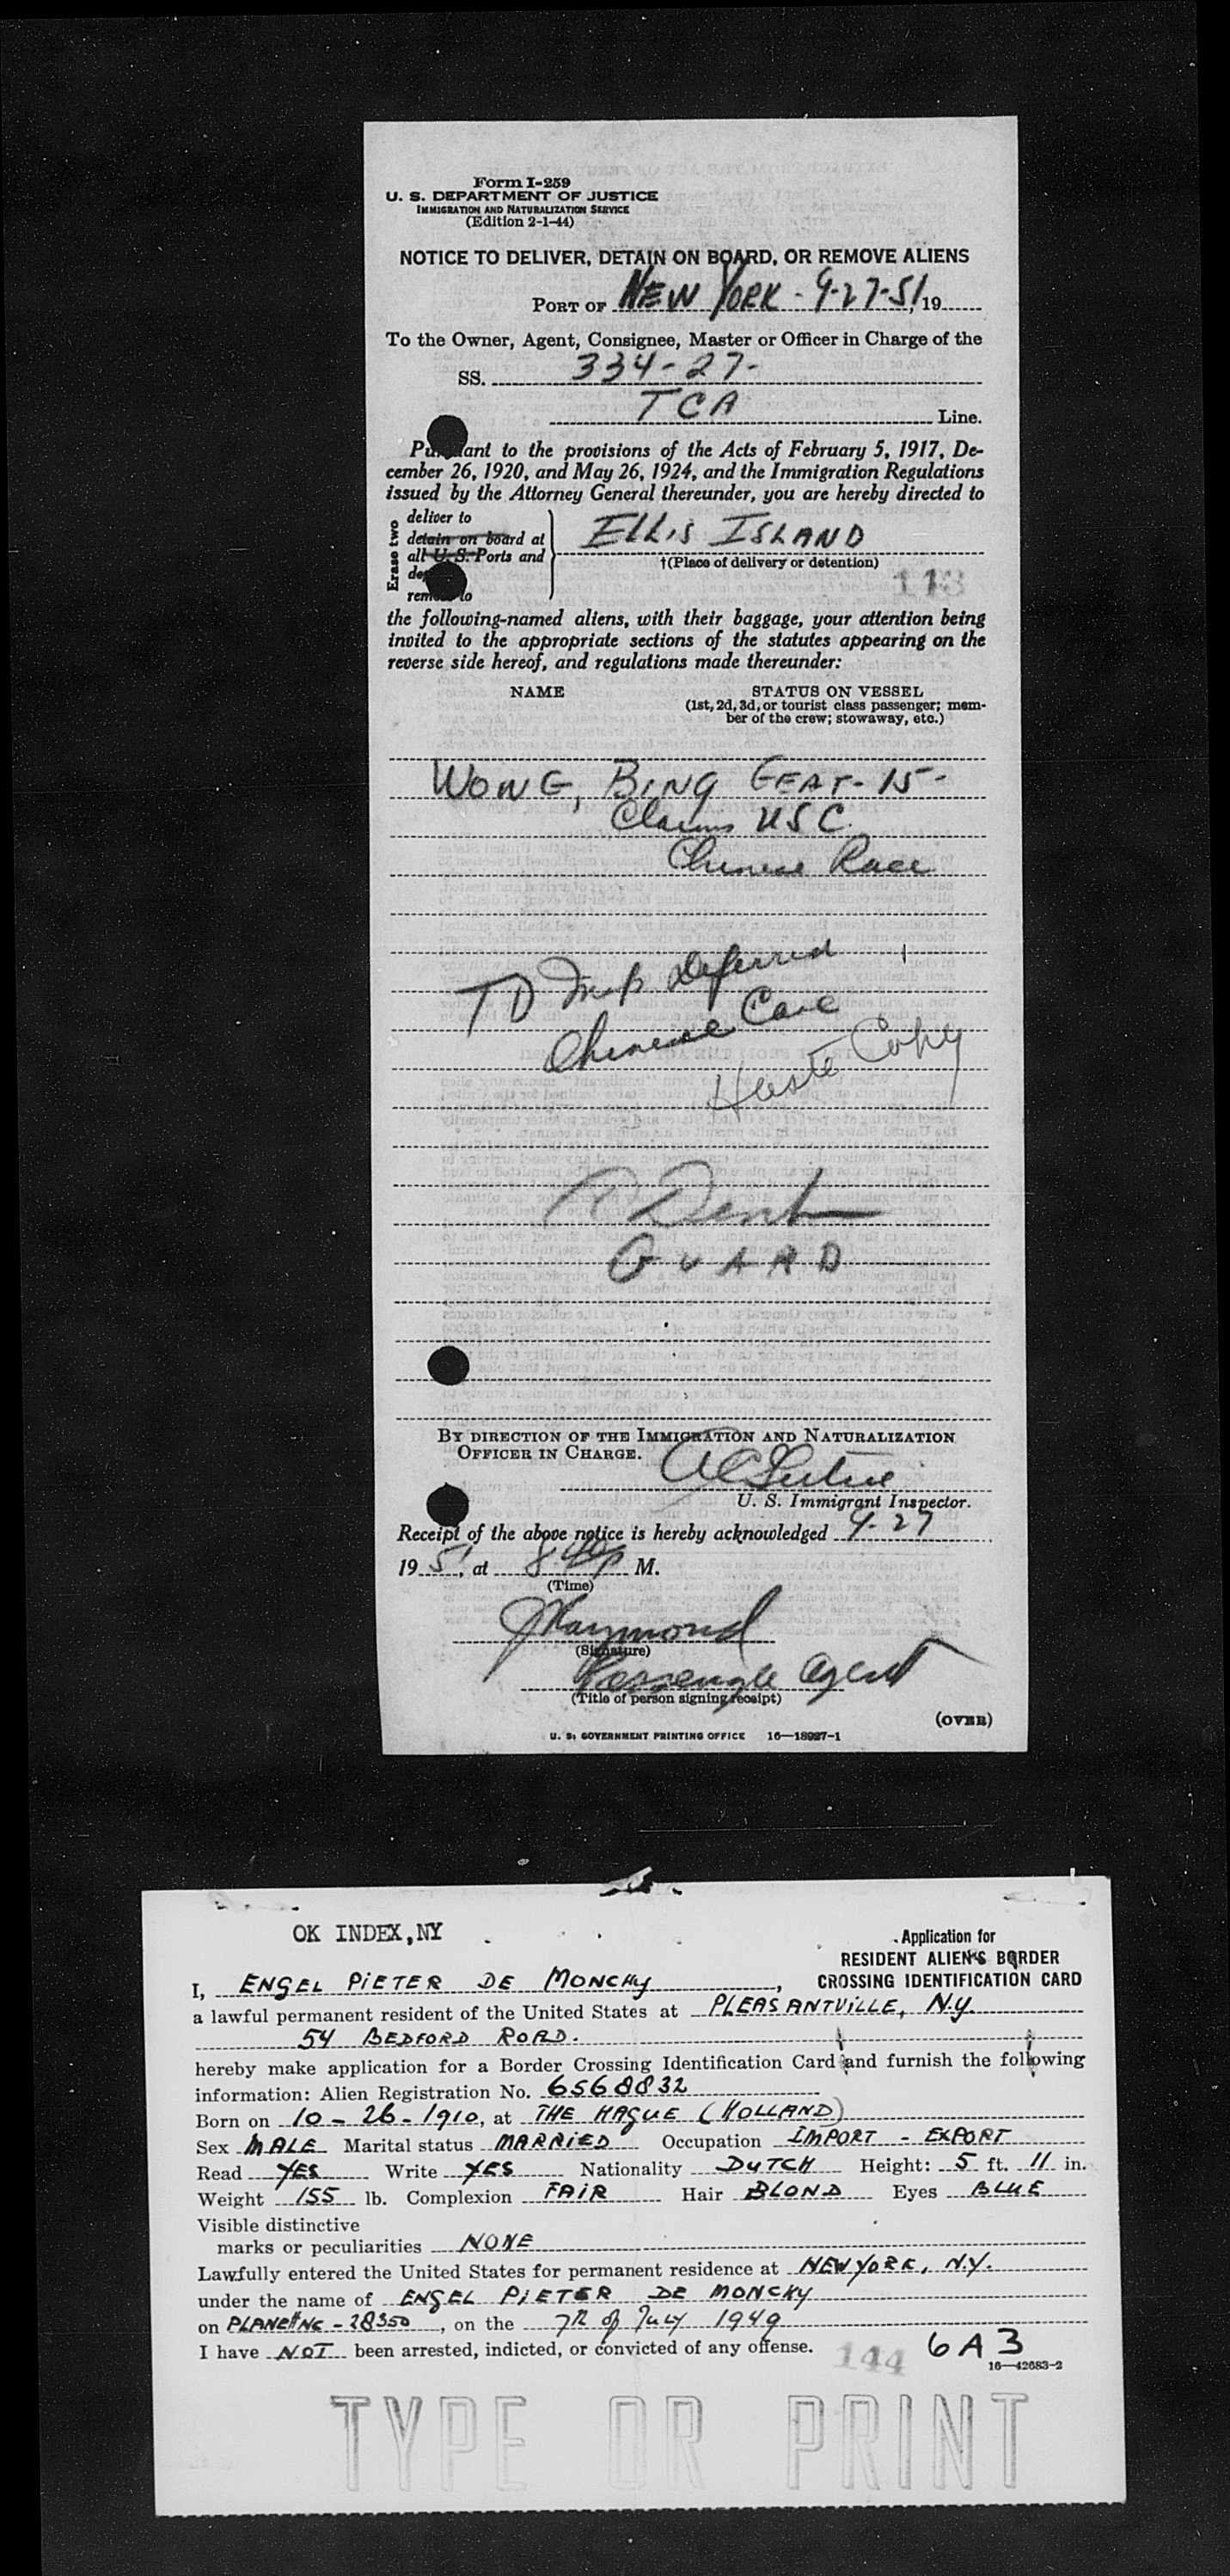 Form I-259
U. S. DEPARTMENT OF JUSTICE
IMMIGRATION AND NATURALIZATION SERVICE
(Edition 2-1-44)
NOTICE TO DELIVER, DETAIN ON BOARD, OR REMOVE ALIENS
PORT OF NEW YORK - 9-27-51, 19
To the Owner, Agent, Consignee, Master or Officer in Charge of the
SS. 334-27-
TCA Line.
Pursuant to the provisions of the Acts of February 5, 1917, De-
cember 26, 1920, and May 26, 1924, and the Immigration Regulations
issued by the Attorney General thereunder, you are hereby directed to
Erase two
deliver to
detain on board at
all U. S. Ports and
remove to
ELLIS ISLAND
†(Place of delivery or detention)
113
the following-named aliens, with their baggage, your attention being
invited to the appropriate sections of the statutes appearing on the
reverse side hereof, and regulations made thereunder:
NAME STATUS ON VESSEL
(1st, 2d, 3d, or tourist class passenger; mem-
ber of the crew; stowaway, etc.)
WONG, BING GEAT - 15 -
Claims USC.
Chinese Race
TD Deferred
Chinese Case
Copy
Dent
GUARD
BY DIRECTION OF THE IMMIGRATION AND NATURALIZATION
OFFICER IN CHARGE.
U. S. Immigrant Inspector.
Receipt of the above notice is hereby acknowledged 9-27
1951, at 8:40 P M.
(Time)
J Raymond
(Signature)
Passenger Agent
(Title of person signing receipt)
(OVER)
U. S. GOVERNMENT PRINTING OFFICE 16—18927-1
OK INDEX,NY
Application for
RESIDENT ALIEN'S BORDER
CROSSING IDENTIFICATION CARD
I, ENGEL PIETER DE MONCHY,
a lawful permanent resident of the United States at PLEASANTVILLE, N.Y.
54 BEDFORD ROAD.
hereby make application for a Border Crossing Identification Card and furnish the following
information: Alien Registration No. 6568832
Born on 10-26-1910, at THE HAGUE (HOLLAND)
Sex MALE Marital status MARRIED Occupation IMPORT - EXPORT
Read YES Write YES Nationality DUTCH Height: 5 ft. 11 in.
Weight 155 lb. Complexion FAIR Hair BLOND Eyes BLUE
Visible distinctive
marks or peculiarities NONE
Lawfully entered the United States for permanent residence at NEW YORK, N.Y.
under the name of ENGEL PIETER DE MONCHY
on PLANE # NC-28350, on the 7th of July 1949
I have NOT been arrested, indicted, or convicted of any offense.
144 6A3
16—42683-2
TYPE OR PRINT